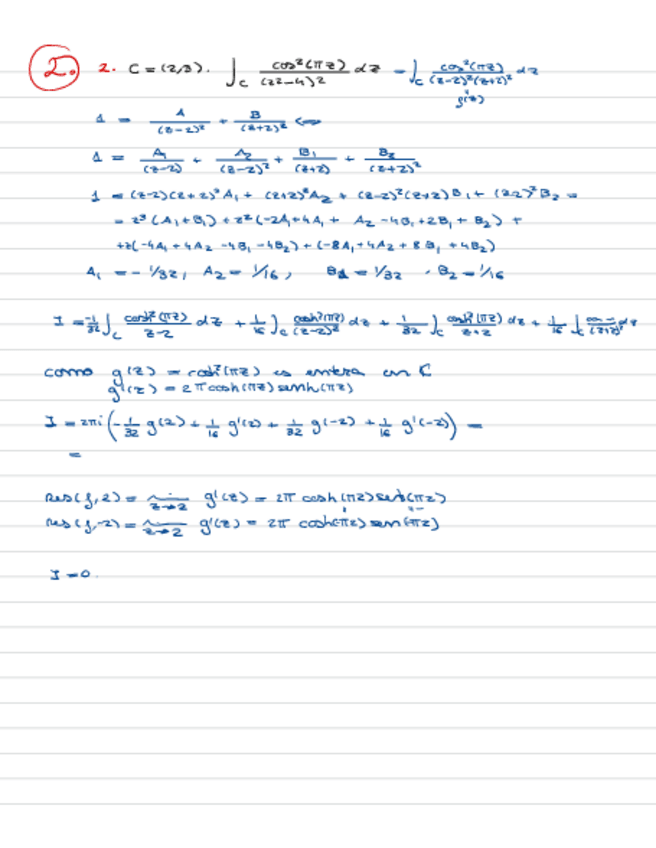 2. 2. C = (2,3). ∫_C cos²(πz)/(z²-4)² dz = ∫_C cos²(πz)/((z-2)²(z+2)²) dz
g(z)
1 = A/(z-2)² + B/(z+2)² ⇔
1 = A₁/(z-2) + A₂/(z-2)² + B₁/(z+2) + B₂/(z+2)²
1 = (z-2)(z+2)²A₁ + (z+2)²A₂ + (z-2)²(z+2)B₁ + (z-2)²B₂ =
= z³(A₁+B₁) + z²(-2A₁+4A₁ + A₂ -4B₁+2B₁ + B₂) +
+z(-4A₁ + 4A₂ -4B₁ -4B₂) + (-8A₁+4A₂ + 8B₁ + 4B₂)
A₁ = -1/32, A₂ = 1/16, B₁ = 1/32, B₂ = 1/16
I = -1/32 ∫_C cosh²(πz)/(z-2) dz + 1/16 ∫_C cosh²(πz)/(z-2)² dz + 1/32 ∫_C cosh²(πz)/(z+2) dz + 1/16 ∫_C dz
como g(z) = cosh²(πz) es entera en C
g'(z) = 2π cosh(πz) senh(πz)
I = 2πi (-1/32 g(2) + 1/16 g'(2) + 1/32 g(-2) + 1/16 g'(-2)) =
=
Res(f,2) = z→2 g'(z) = 2π cosh(πz) senh(πz)
res(f,-2) = z→2 g'(z) = 2π cosh(πz) sen(πz)
I = 0.